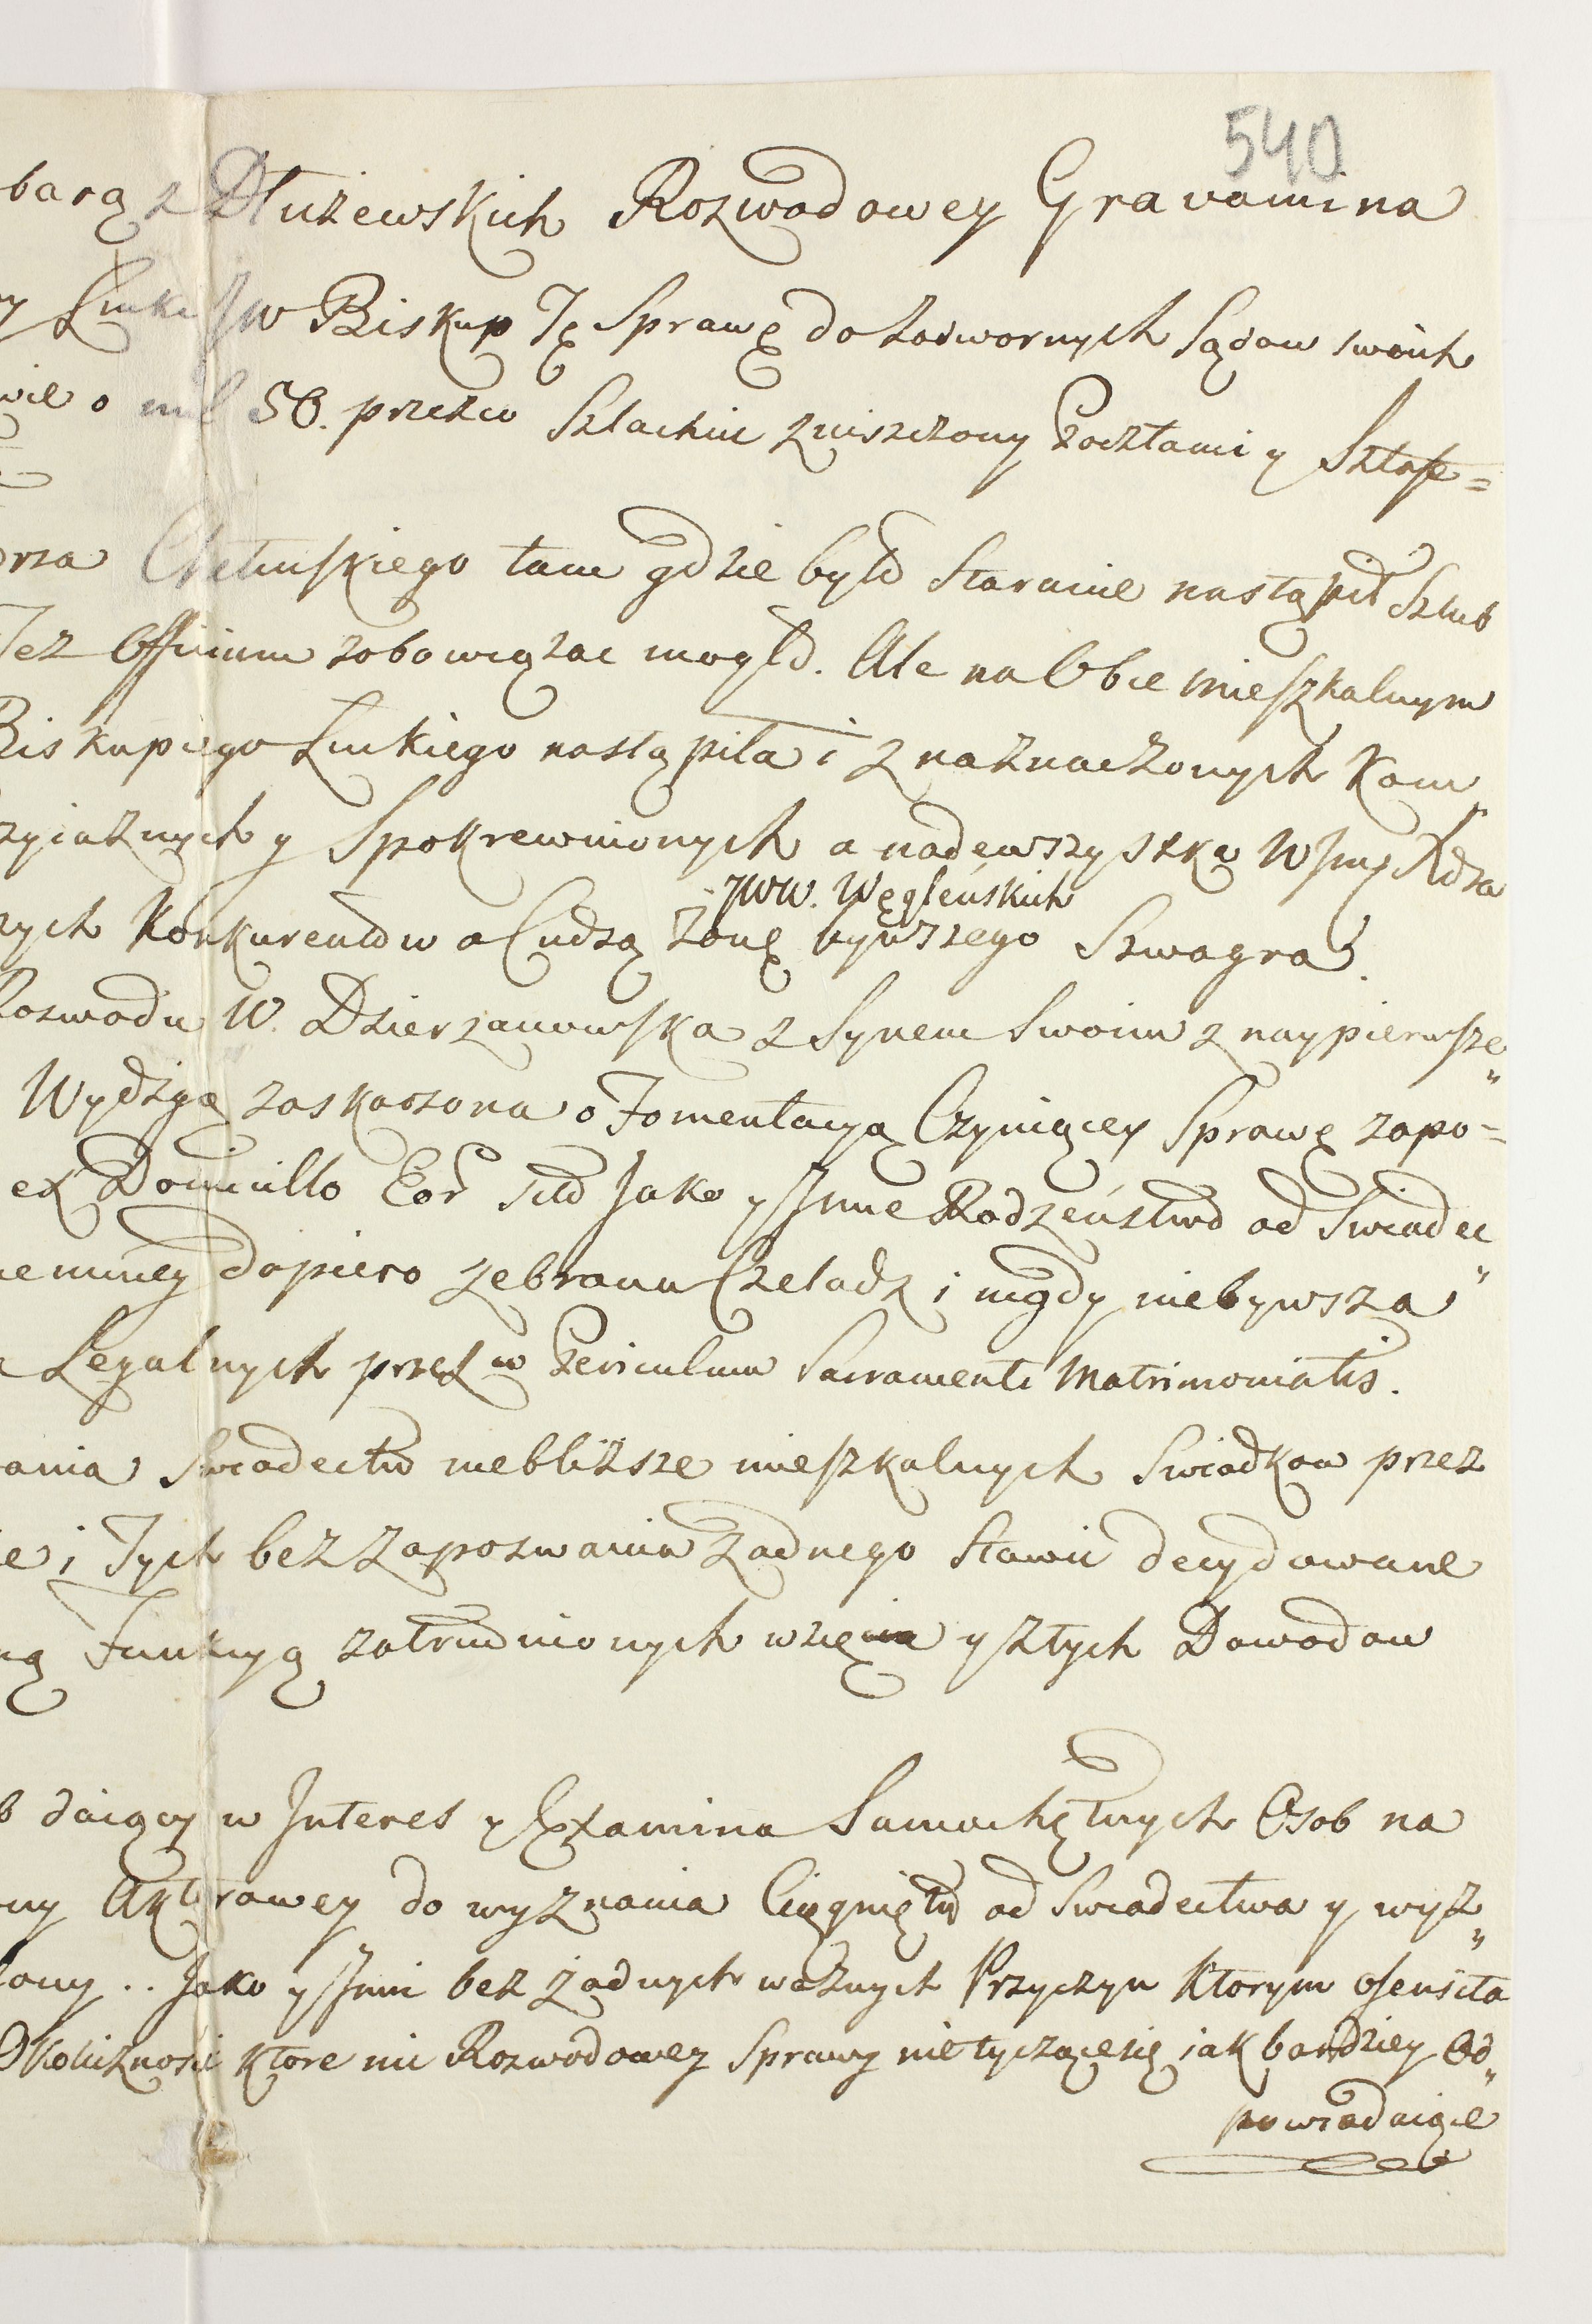 540
barą z Dłużewskich Rozwodowey Gravamina
y Łucki JW Biskup Tę Sprawę do Zadwornych Sądow swoich
wie o mil 50. przeto Szlachcic zniszczony Pocztami y Sztafe=
rsa Chełmskiego tam gdzie było Staranie nastąpił Szlub
Też Officium zobowiązac mogło. Ale na Obie mieszkalnym
Biskupiego Łuckiego nastąpiła i z naznaczonych Kom
zyiaznych y Spokrewnionych a nadewszystko WJmcXdza
JWW. Węgleńskich
nych Konkurentow o Cudzą żonę bywszego Szwagra.
Rozwodu W. Dzierzanowska z Synem Swoim z naypierwsze„
Wydżgę zaskarzona o Fomentacyą Czyniącey Sprawę zapo=
ex Domicillo Eor sito Jako y Jnne Rodzeństwo od Swiadec
nemney dopiero zebrana Czeladz i nigdy niebywsza„
Legalnych przez co Periculum Sacramenti Matrimonialis.
ania Swiadectw niebliższe mieszkalnych Swiadkow przez
ie i Tych bez Zapozwania żadnego Stawic decydowane
ną Funkcyą zatrudnionych wzięcia y złych Dowodow
b daiący w Jnteres y Examina Samochętnych Osob na
ny Aktorowey do wyznania Ciągnięto od Swiadectwa y wyz„
lony .. Jako y Jnni bez żadnych ważnych Przyczyn Ktorym ofenścta
Okoliczności ktore nic Rozwodowey Sprawy nietyczącesię iak bardziey Od„
powiadaiące